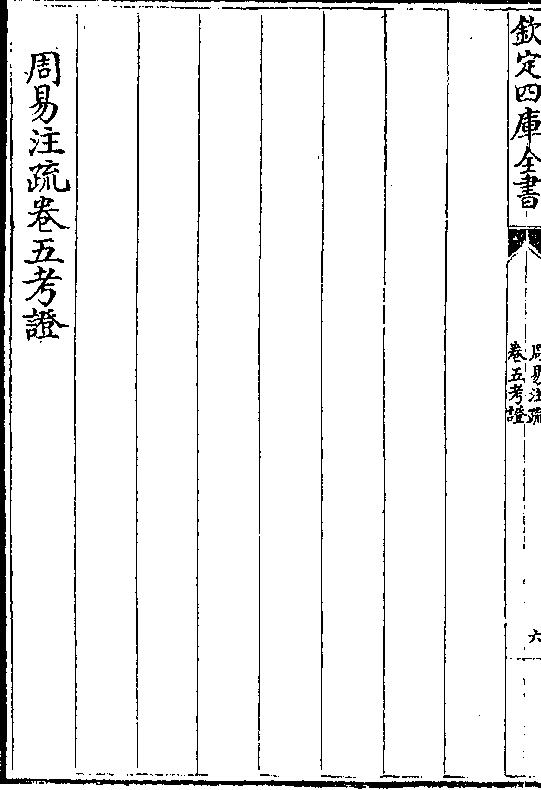 欽定四庫全書
周易注疏
卷五考證
六
周易注疏卷五考證